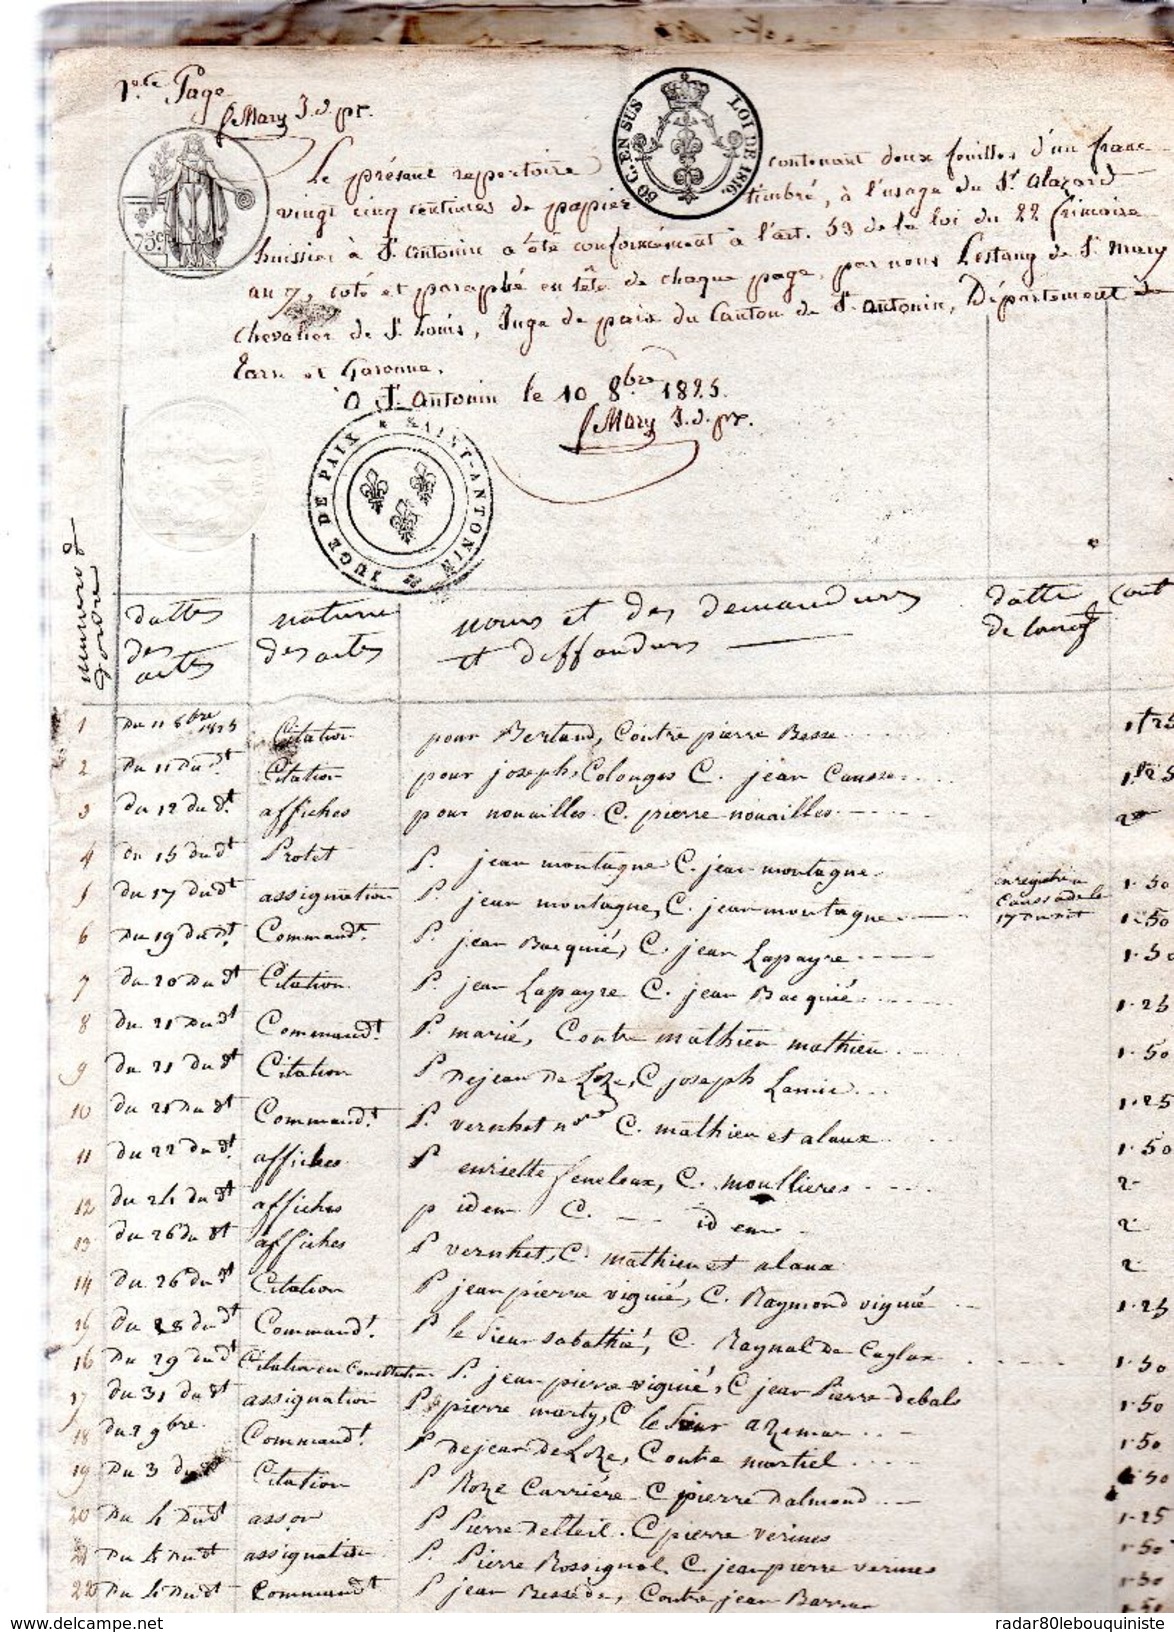 1.ere Page
Mary J. d. px.
80 C. EN SUS LOI DE 1816.
75 c.
Le présent repertoire contenant deux feuilles d'un franc
vingt cinq centimes de papier timbré, à l'usage du Sr. alazard
huissier à St. antonin a été conformément à l'art. 53 de la loi du 22 frimaire
an 7, coté et paraphé en tête de chaque page, par nous Lestang de St. Mary
Chevalier de St. Louis, Juge de paix du Canton de St. antonin, Département de
Tarn et Garonne.
a St. Antonin le 10 8.bre 1825.
Mary J. d. px.
JUGE DE PAIX SAINT-ANTONIN
numero d'ordre
dattes des actes
nature des actes
noms et des demandeurs et deffendurs
datte de
Cout
1 Du 11 8bre 1825 Citation pour Bertrand, Contre pierre Besse 1f25
2 Du 11 Du dt. Citation pour joseph Colonges C. jean Causse 1f25
3 du 12 du dt. affiches pour nouailles C. pierre nouailles 2
4 du 15 du dt Protet P. jean montagne C. jean montagne 1.50
5 du 17 du dt assignation P. jean montagne, C. jean montagne enregistré a Caussade le 17 Du dit 1.50
6 Du 19 du dt. Commandt. P. jean Bacquié, C. jean Lapayre 1.50
7 du 20 Du dt Citation P. jean Lapayre C. jean Bacquié 1.25
8 du 21 Du dt Commandt. P. marié, Contre mathieu mathieu 1.50
9 du 21 du dt Citation P Dejean De Loze, C joseph Lamie 1.25
10 du 21 Du dt Commandt. P. vernhet nre C. mathieu et alaux 1.50
11 du 22 du dt. affiches P enriette feneloux, C. moullieres 2
12 du 24 du dt affiches p idem C. idem 2
13 du 26 du dt affiches P vernhet, C. mathieu et alaux 2
14 du 26 du dt Citation P jean pierre viguié, C. Raymond viguié 1.25
15 du 28 du dt Commandt. P le Sieur sabathié, C. Raynal de Caylux 1.50
16 Du 29 du dt Citation en Conciliation P. jean pierre viguié, C jean Pierre debals 1.50
17 du 31 du dt assignation P pierre marty, C le Sieur azemar 1.50
18 du 2 9bre Commandt. P Dejean De Loze, Contre martiel 1.50
19 Du 3 du dt Citation P Roze Carrière C pierre Dalmond 1.25
20 Du 4 Du dt asson P Pierre Delteil. C pierre verines 1.50
21 Du 4 Du dt assignation P. Pierre Rossignol, C jean pierre verines 1.50
22 Du 4 Du dt Commandt P jean Bessede, Contre jean Barrau 1.50
radar80lebouquiniste